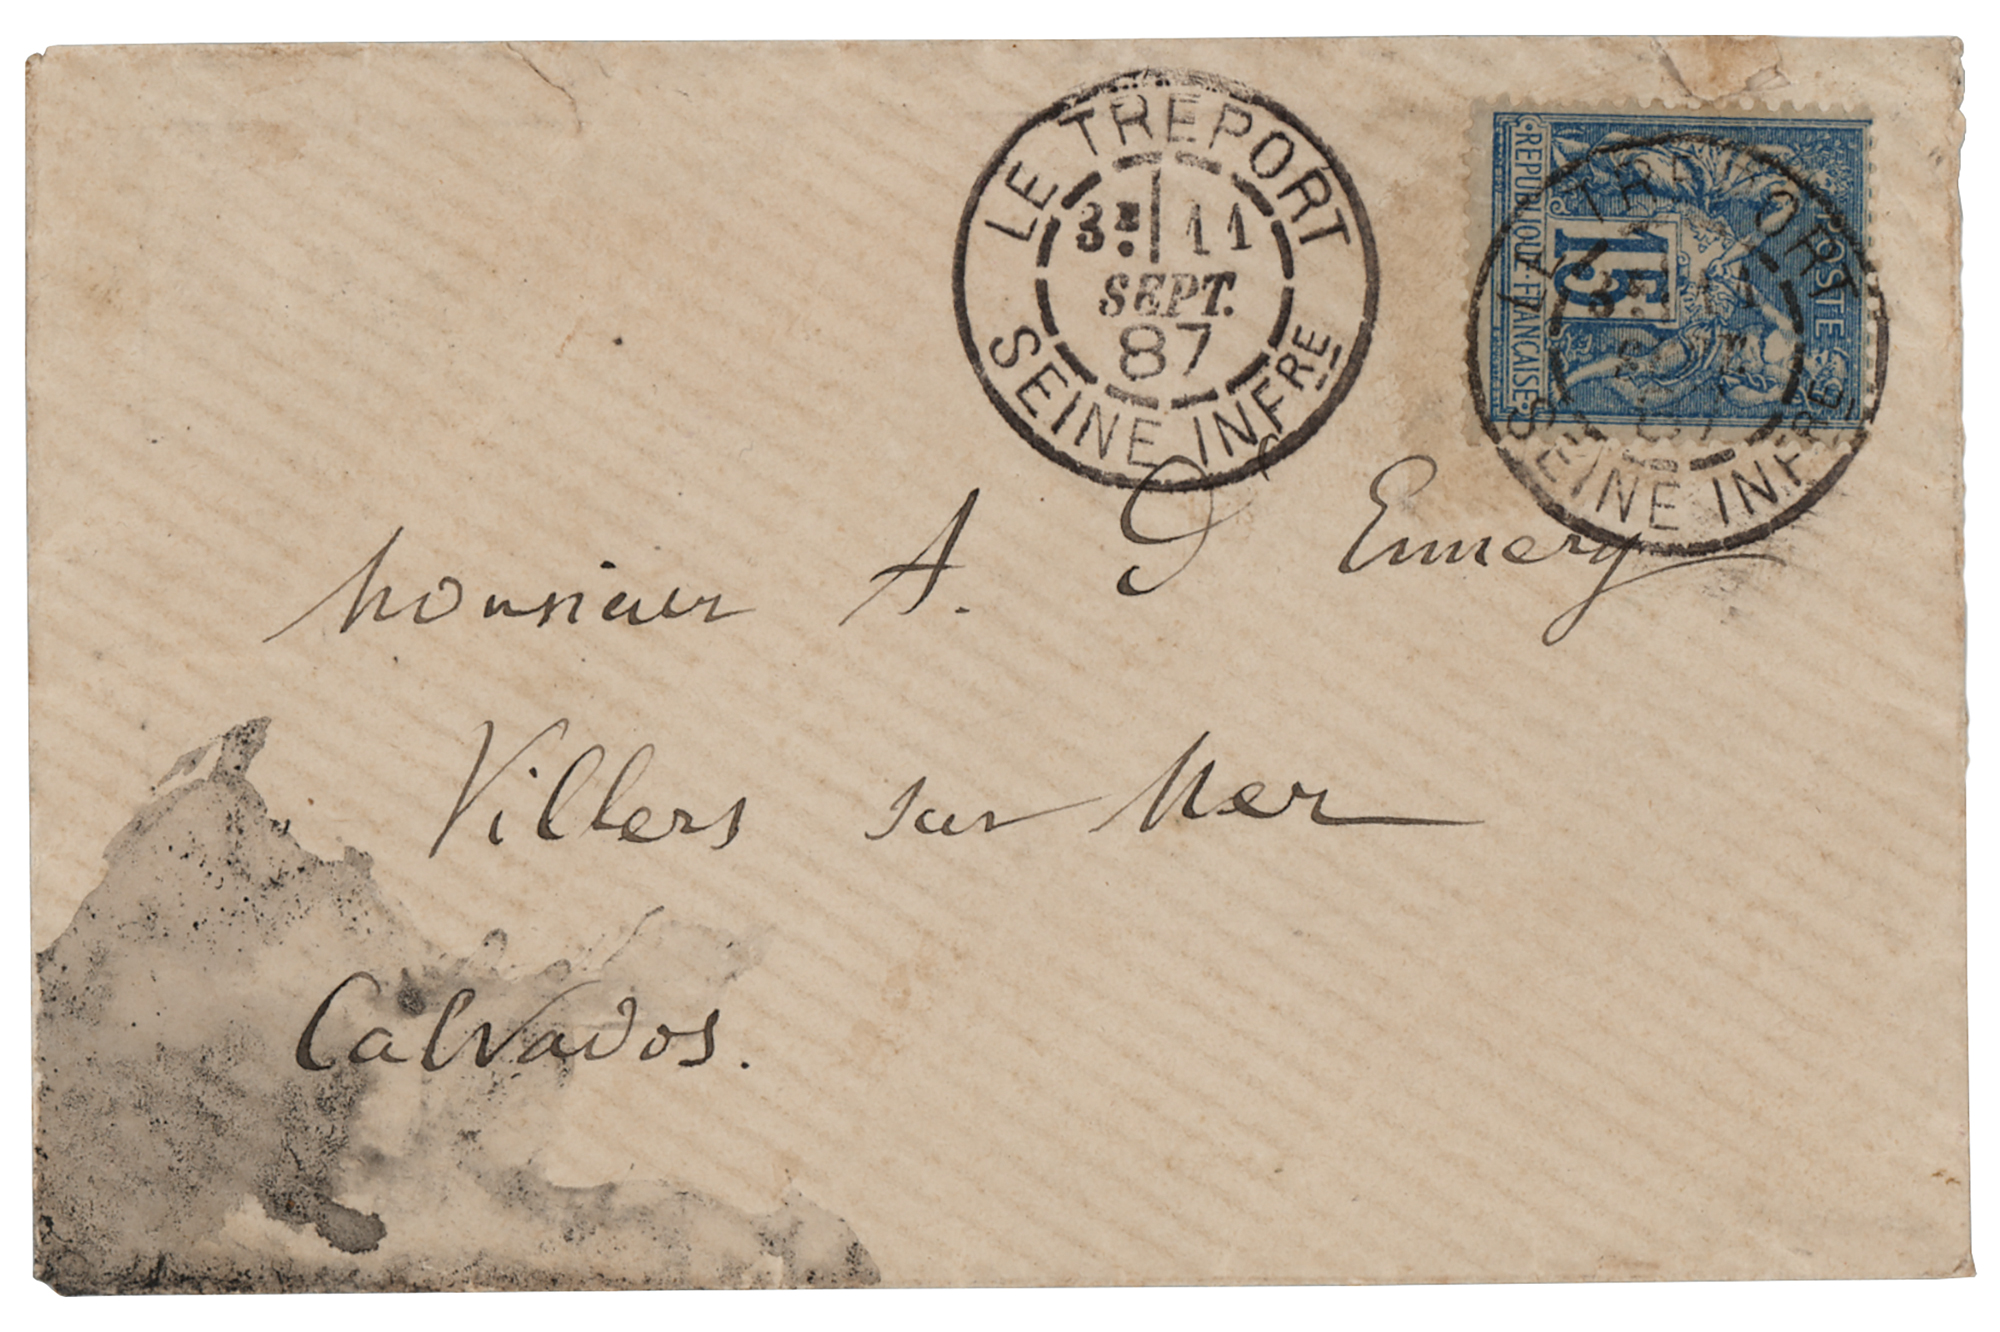 LE TREPORT
3E 11
SEPT.
87
SEINE INFRE
POSTE
15
REPUBLIQUE FRANCAISE
LE TREPORT
SEINE INFRE
Monsieur A. D'Ennery
Villers sur Mer
Calvados.